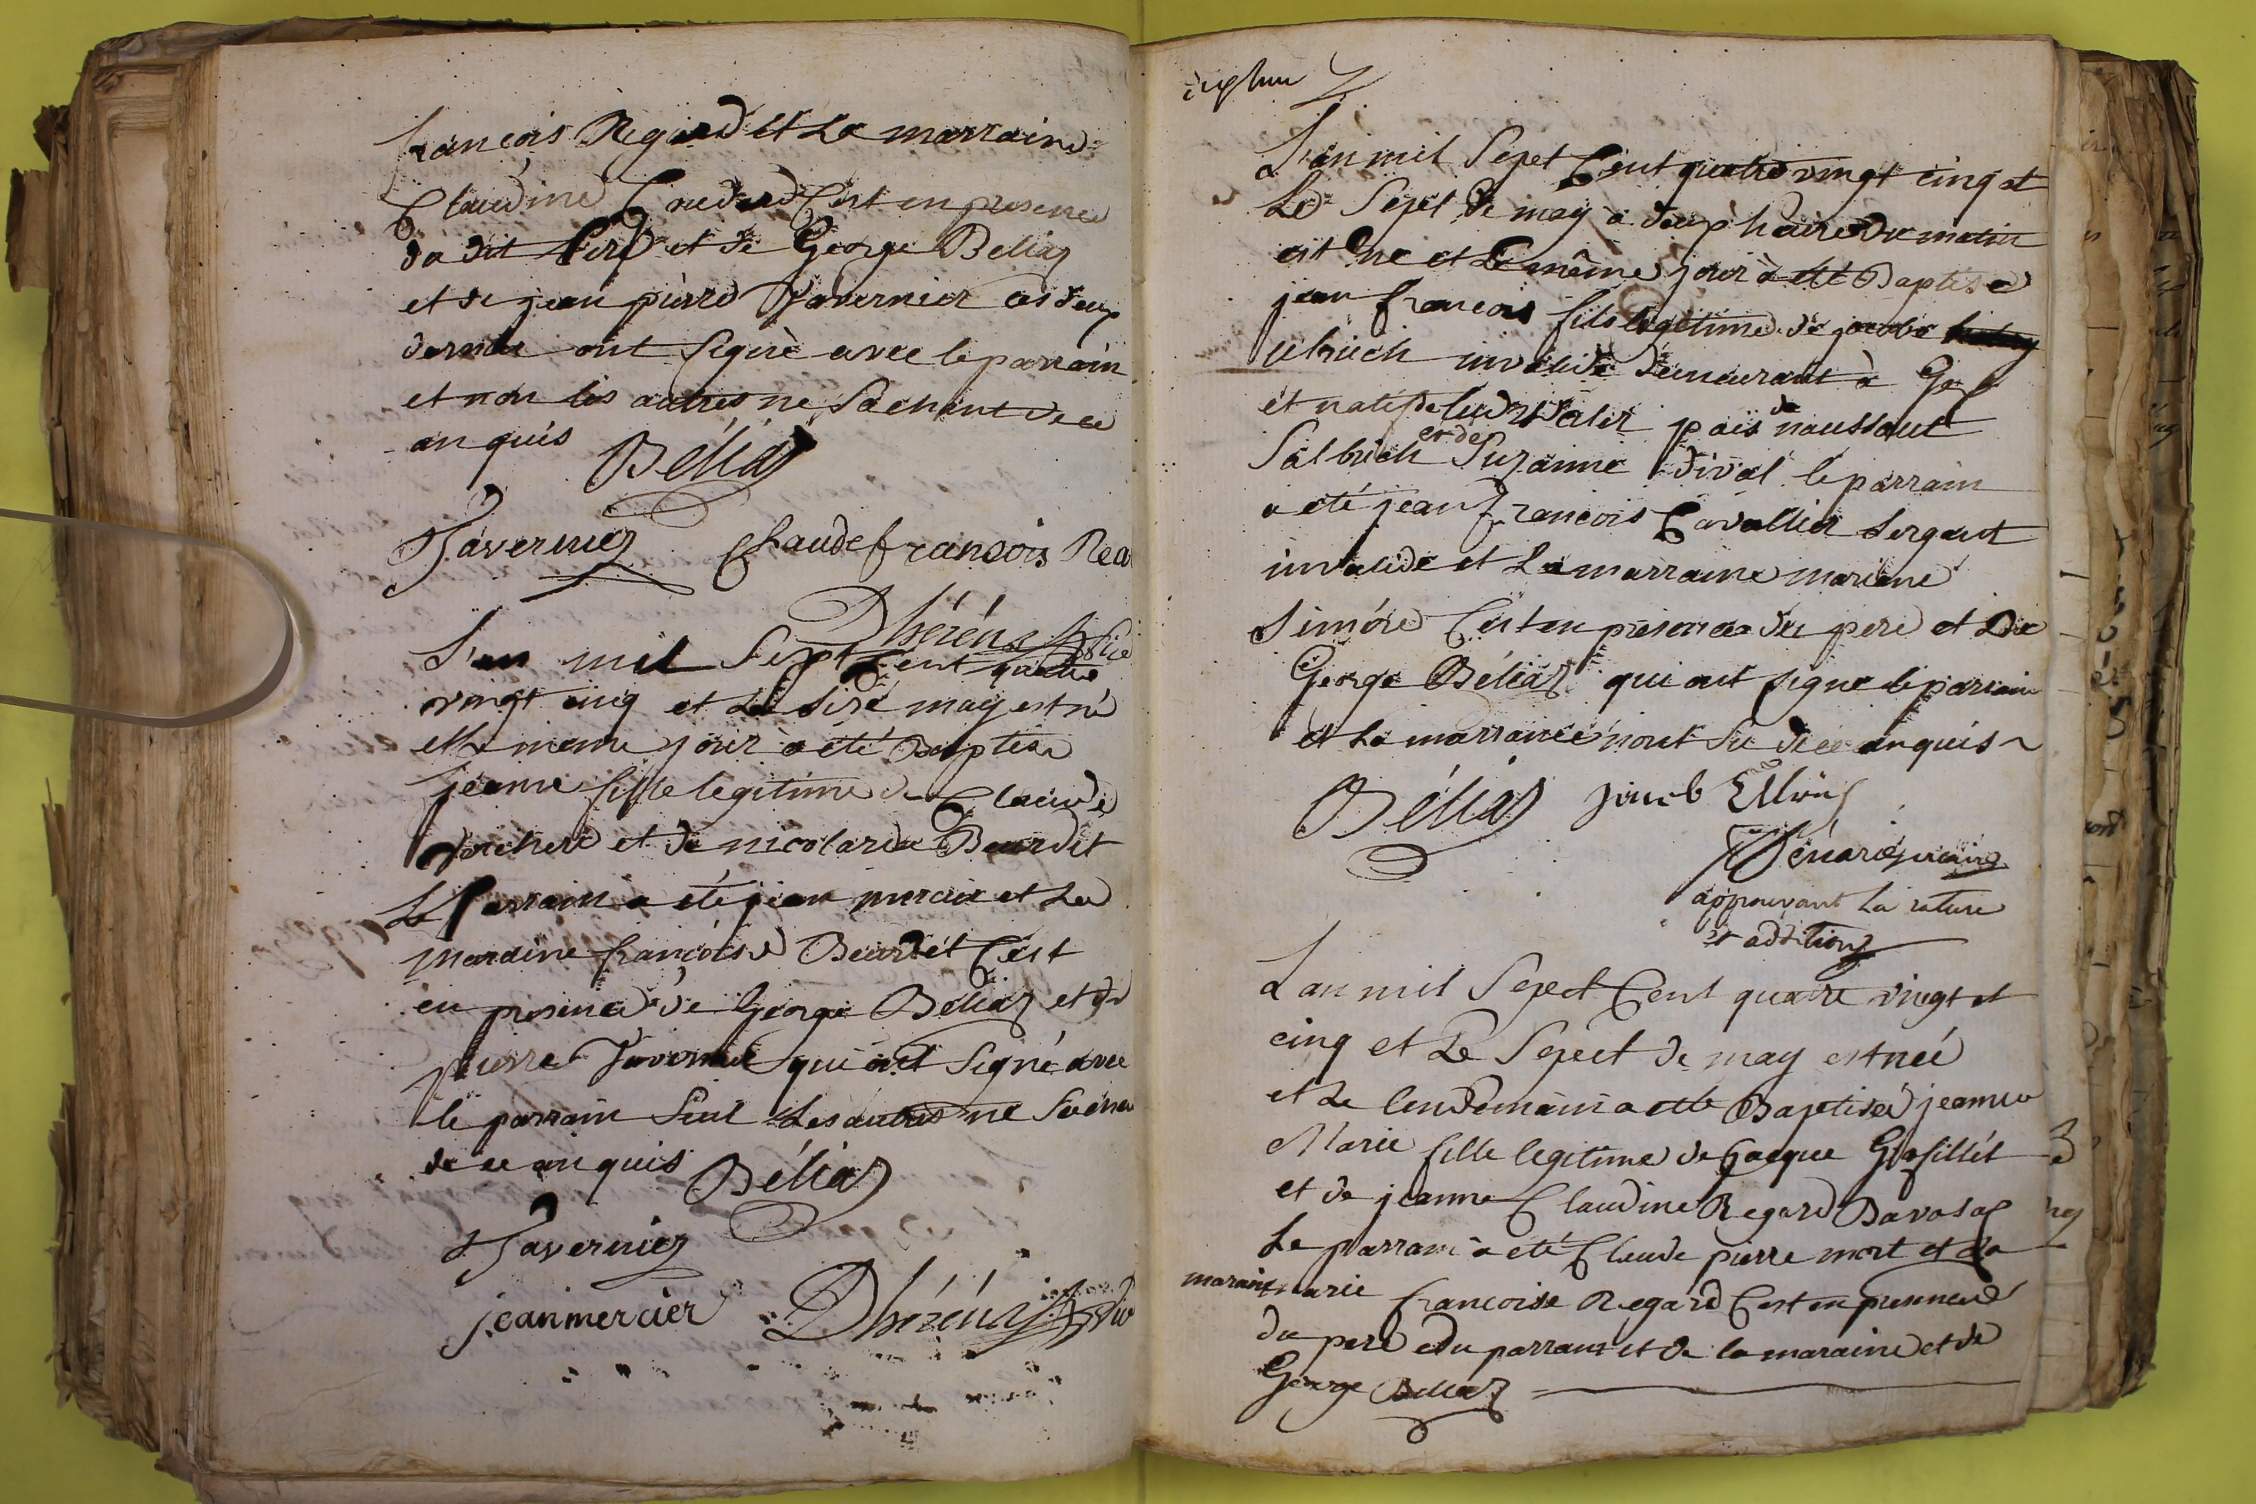 francois Regard et La marraine
Claudine Cruderd C'est en presence
du dit Pere et de George Beliaz
et de jean pierre Tavernier ces deux
dernier ont signé avec le parrain
et non les autres ne Sachant de ce
anquis
Béliaz
Tavernier Claude francois Rea
L'an mil Sept Cent quatre
vingt cinq et Le sixe may est né
et le meme jour a eté Baptisé
jeanne fille legitime de Claude
et de nicolarde Beurdet
Le Parrain a eté jean mercier et La
maraine francoise Beurdet C'est
en presence de George Beliaz et de
pierre Tavernier qui ont signé avec
le parrain seul Les autres ne Sachan
de ce anquis Béliaz
Tavernier
jean mercier
L'an mil Sepet Cent quatre vingt cinq et
Le Sepet de may à deux heure du matin
est né et Le même jour à eté Baptisé
jean francois fils legitime de jacobe
ulrich invalide demeurant à Gex
et natif de païs de naussaut
Salbrich et de Suzanne dival le parrain
a eté jean francois Cavallier sergant
invalide et La marraine mariane
Simóre C'est en presence du pere et De
George Béliaz qui ont signe le parrain
et La marraine n'ont su de ce anquis
Béliaz jacob Ullrich
approuvant La rature
et addition
L'an mil Sepet Cent quatre vingt et
cinq et Le Sepect de may est neé
et Le lendemain a eté Baptisée jeanne
Marie fille legitime de Jacque Grosfillét
et de jeanne Claudine Regard Davosaz
Le parrain a eté Claude pierre mort et La
marain marie francoise Regard C'est en presence
du pere et du parrain et de la maraine et de
George Beliaz